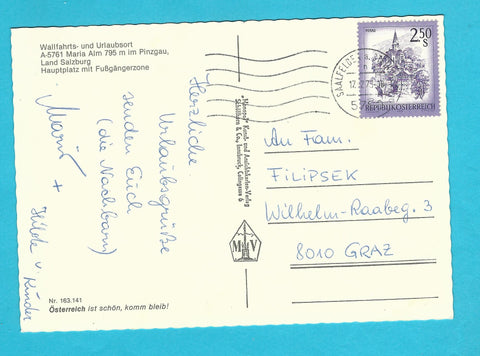 Wallfahrts- und Urlaubsort
A-5761 Maria Alm 795 m im Pinzgau,
Land Salzburg
Hauptplatz mit Fußgängerzone
Herzliche
Urlaubsgrüße
senden Euch
(die Nachbarn)
Mario
+ Hilde u Kinder
Nr. 163.141
Österreich ist schön, komm bleib!
Kunst- und Ansichtskarten-Verlag
& Co., Innsbruck,
M V
SAALFELDEN
2.50
S
REPUBLIK ÖSTERREICH
An Fam.
FILIPSEK
Wilhelm-Raabeg. 3
8010 GRAZ